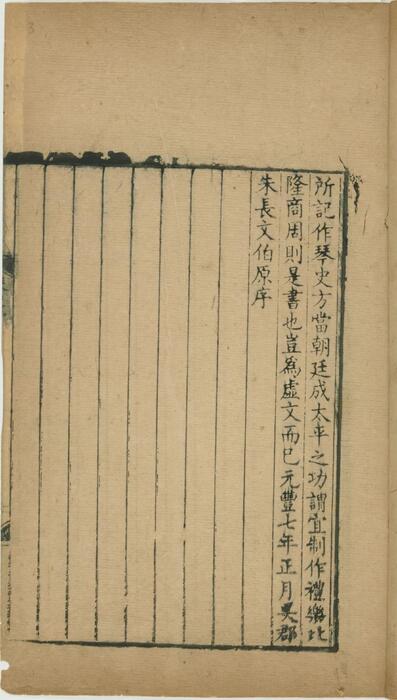 所記作琴史方當朝廷成太平之功謂宜制作禮樂比
隆商周則是書也豈為虛文而已元豐七年正月吳郡
朱長文伯原序